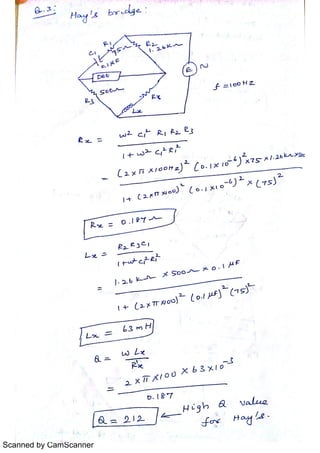 Q.3: Hay's bridge:
R1 R2
C1 75Ω 1.26kΩ
0.1μF
Det E N
f = 100Hz
500Ω
R3 Rx
Lx
Rx = w² C1² R1 R2 R3
1 + w² C1² R1²
= (2×π×100Hz)² (0.1×10⁻⁶)² ×75×1.26k×500
1 + (2×π×100)² (0.1×10⁻⁶)² × (75)²
Rx = 0.187Ω
Lx = R2 R3 C1
1 + w² C1² R1²
= 1.26kΩ × 500Ω × 0.1 μF
1 + (2×π×100)² (0.1 μF)² (75)²
Lx = 63 mH
Q = w Lx
Rx
= 2×π×100 × 63×10⁻³
0.187
Q = 212 ← High Q value
for Hay's.
Scanned by CamScanner